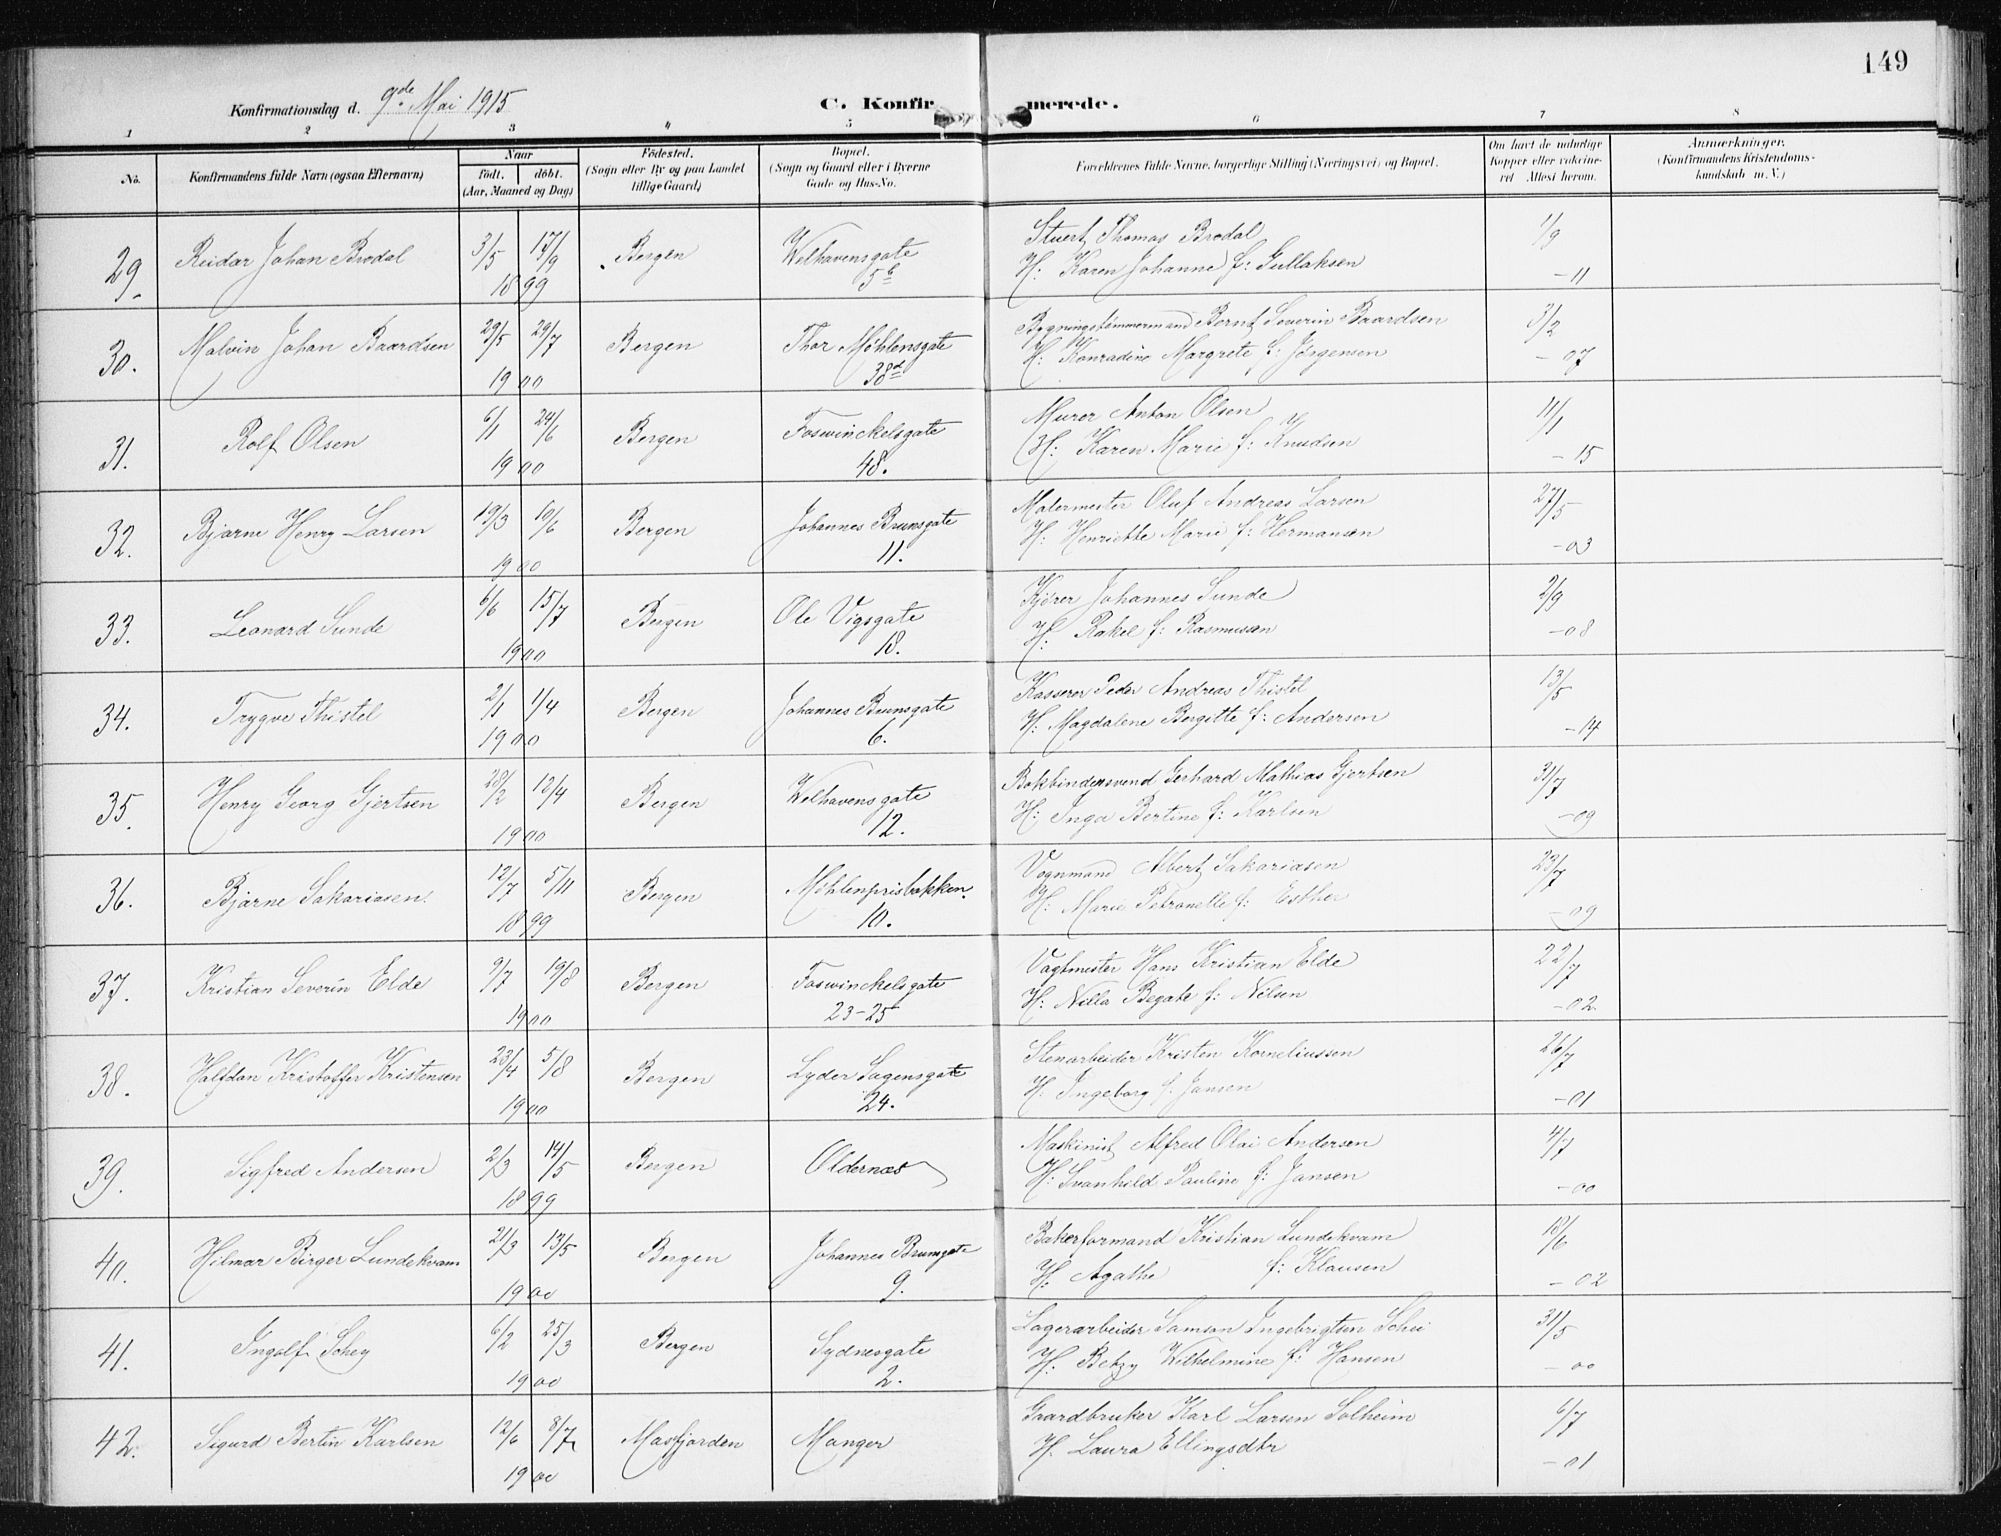 149
Konfirmationsdag d. 9de Mai 1915 C. Konfir merede.
1 2 3 " 5 6 7 8
No. Konfirmandens fulde Navn (ogsaa Efternavn) Naar født. døbt. (Aar, Maaned og Dag) Fødested. (Sogn eller By og paa Landet tillige Gaard) Bopæl. (Sogn og Gaard eller i Byerne Gade og Hus-No. Forældrenes fulde Navne, borgerlige Stilling (Næringsvei) og Bopæl. Om havt de naturlige Kopper eller vaksineret Attest herom. Anmærkninger. (Konfirmandens Kristendomskundskab m. V.)
29. Reidar Johan Brodal 3/5 17/9 1899 Bergen Welhavensgate 5b Stuert Thomas Brodal 1/9
H: Karen Johanne f: Gullaksen -11
30. Malvin Johan Baardsen 29/5 29/7 1900 Bergen Thor Møhlensgate 38d Bygningstømmermand Bernt Severin Baardsen 3/2
H: Konradine Margrete f: Jørgensen -07
31. Rolf Olsen 6/1 24/6 1900 Bergen Foswinckelsgate 48. Murer Anton Olsen 11/1
H: Karen Marie f: Knudsen -15
32. Bjarne Henry Larsen 19/3 10/6 1900 Bergen Johannes Brunsgate 11. Malermester Oluf Andreas Larsen 27/5
H: Henriette Marie f: Hermansen -03
33. Leonard Sunde 6/6 15/7 1900 Bergen Ole Vigsgate 18. Kjører Johannes Sunde 2/9
H: Rakel f: Rasmussen -08
34. Trygve Thistel 2/1 1/4 1900 Bergen Johannes Brunsgate 6. Kasserer Peder Andreas Thistel 13/5
H: Magdalene Bergitte f: Andersen -14
35. Henry Georg Gjertsen 28/2 12/4 1900 Bergen Welhavensgate 12. Bokbindersvend Gerhard Mathias Gjertsen 31/7
H: Inga Bertine f: Karlsen -09
36. Bjarne Sakariasen. 12/7 5/11 1899 Bergen Møhlenprisbakken. 10. Vognmand Albert Sakariasen 23/7
H: Marie Petronelle f: Esther -09
37. Kristian Severin Elde 9/7 19/8 1900 Bergen Foswinckelsgate 23-25 Vagtmester Hans Kristian Elde 22/7
H: Nilla Begate f: Nilsen -02
38. Halfdan Kristoffer Kristensen 23/4 5/8 1900 Bergen Lyder Sagensgate 24. Stenarbeider Kristen Korneliussen 26/7
H: Ingeborg f. Jansen -01
39. Sigfred Andersen 2/3 14/5 1899 Bergen Oldernæs Maskinist Alfred Olai Andersen 4/7
H: Svanhild Pauline f: Jansen -00
40. Hilmar Birger Lundekvam 21/3 13/5 1900 Bergen Johannes Brunsgate 9. Bakerformand Kristian Lundekvam 18/6
H: Agathe f: Klausen -02
41. Ingolf Schey 6/2 25/3 1900 Bergen Sydnesgate 2. Lagerarbeider Samson Ingebrigtsen Schei 31/5
H: Betzy Wilhelmine f: Hansen -00
42. Sigurd Bertin Karlsen 12/6 8/7 1900 Masfjorden Manger Gaardbruker Karl Larsen Solheim 6/7
H. Laura Ellingsdtr -01